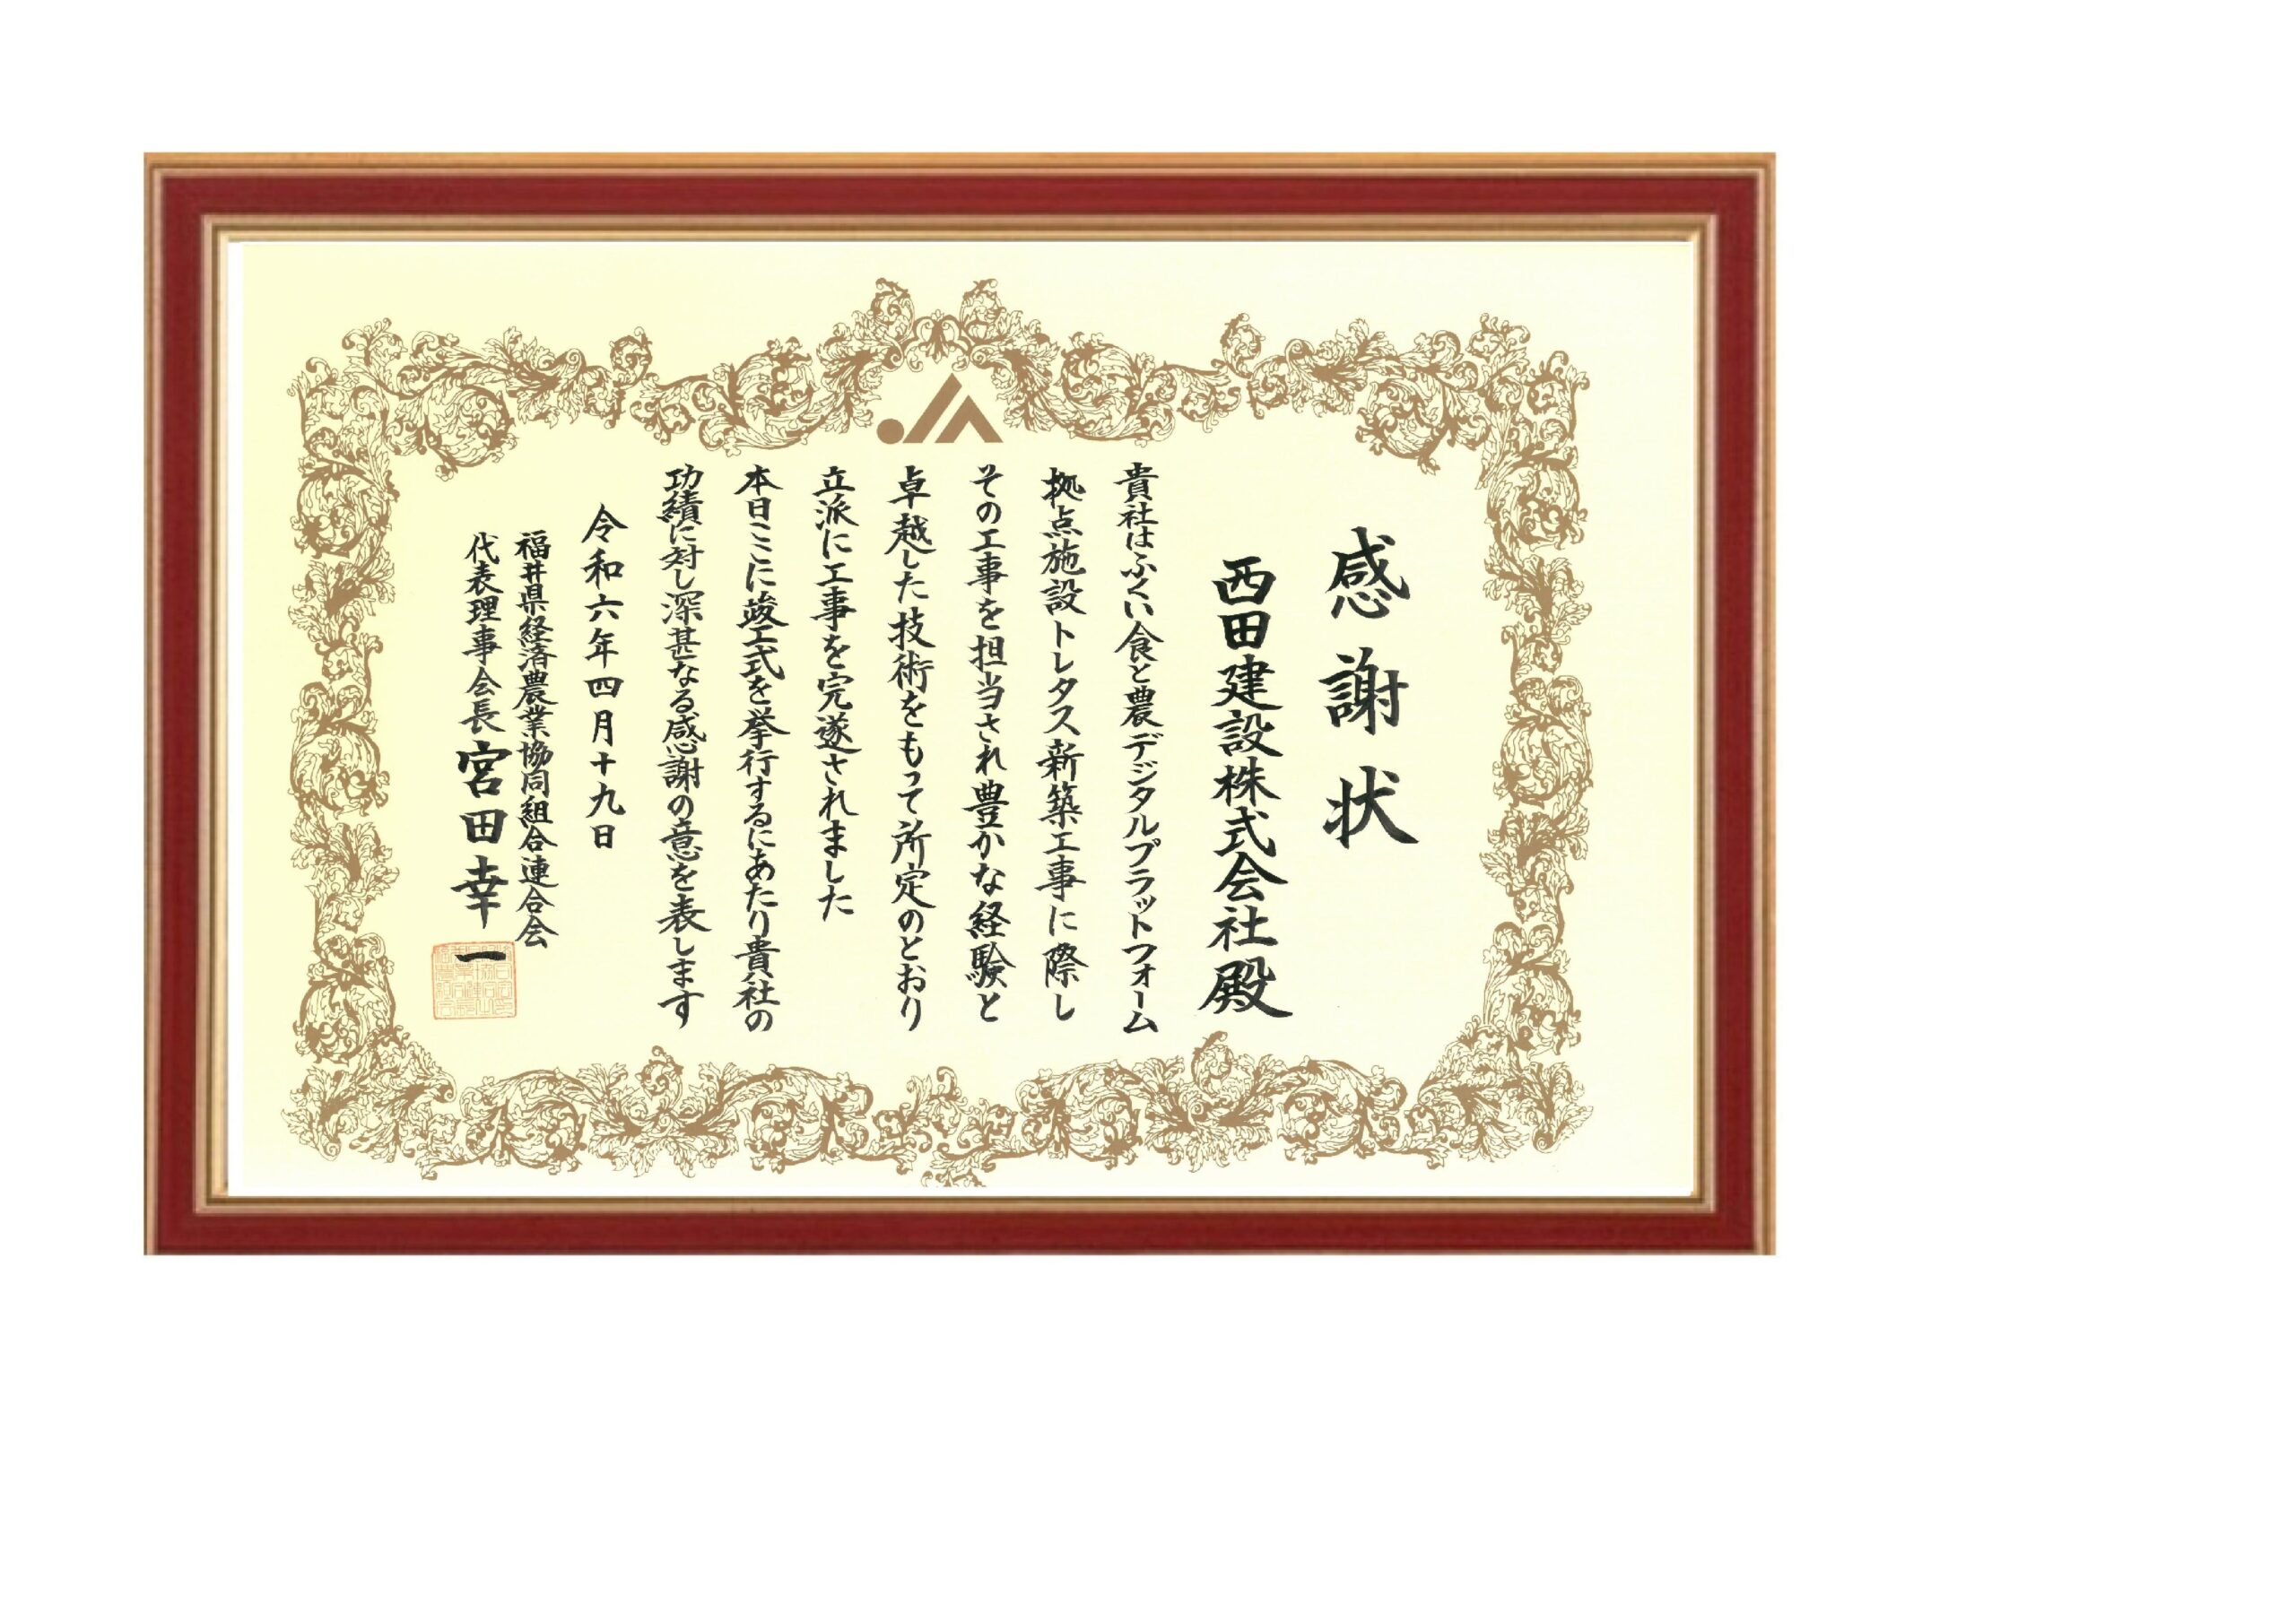 感謝状
西田建設株式会社殿
貴社はふくい食と農デジタルプラットフォーム
拠点施設トレタス新築工事に際し
その工事を担当され豊かな経験と
卓越した技術をもって所定のとおり
立派に工事を完遂されました
本日ここに竣工式を挙行するにあたり貴社の
功績に対し深甚なる感謝の意を表します
令和六年四月十九日
福井県経済農業協同組合連合会
代表理事会長 宮田幸一